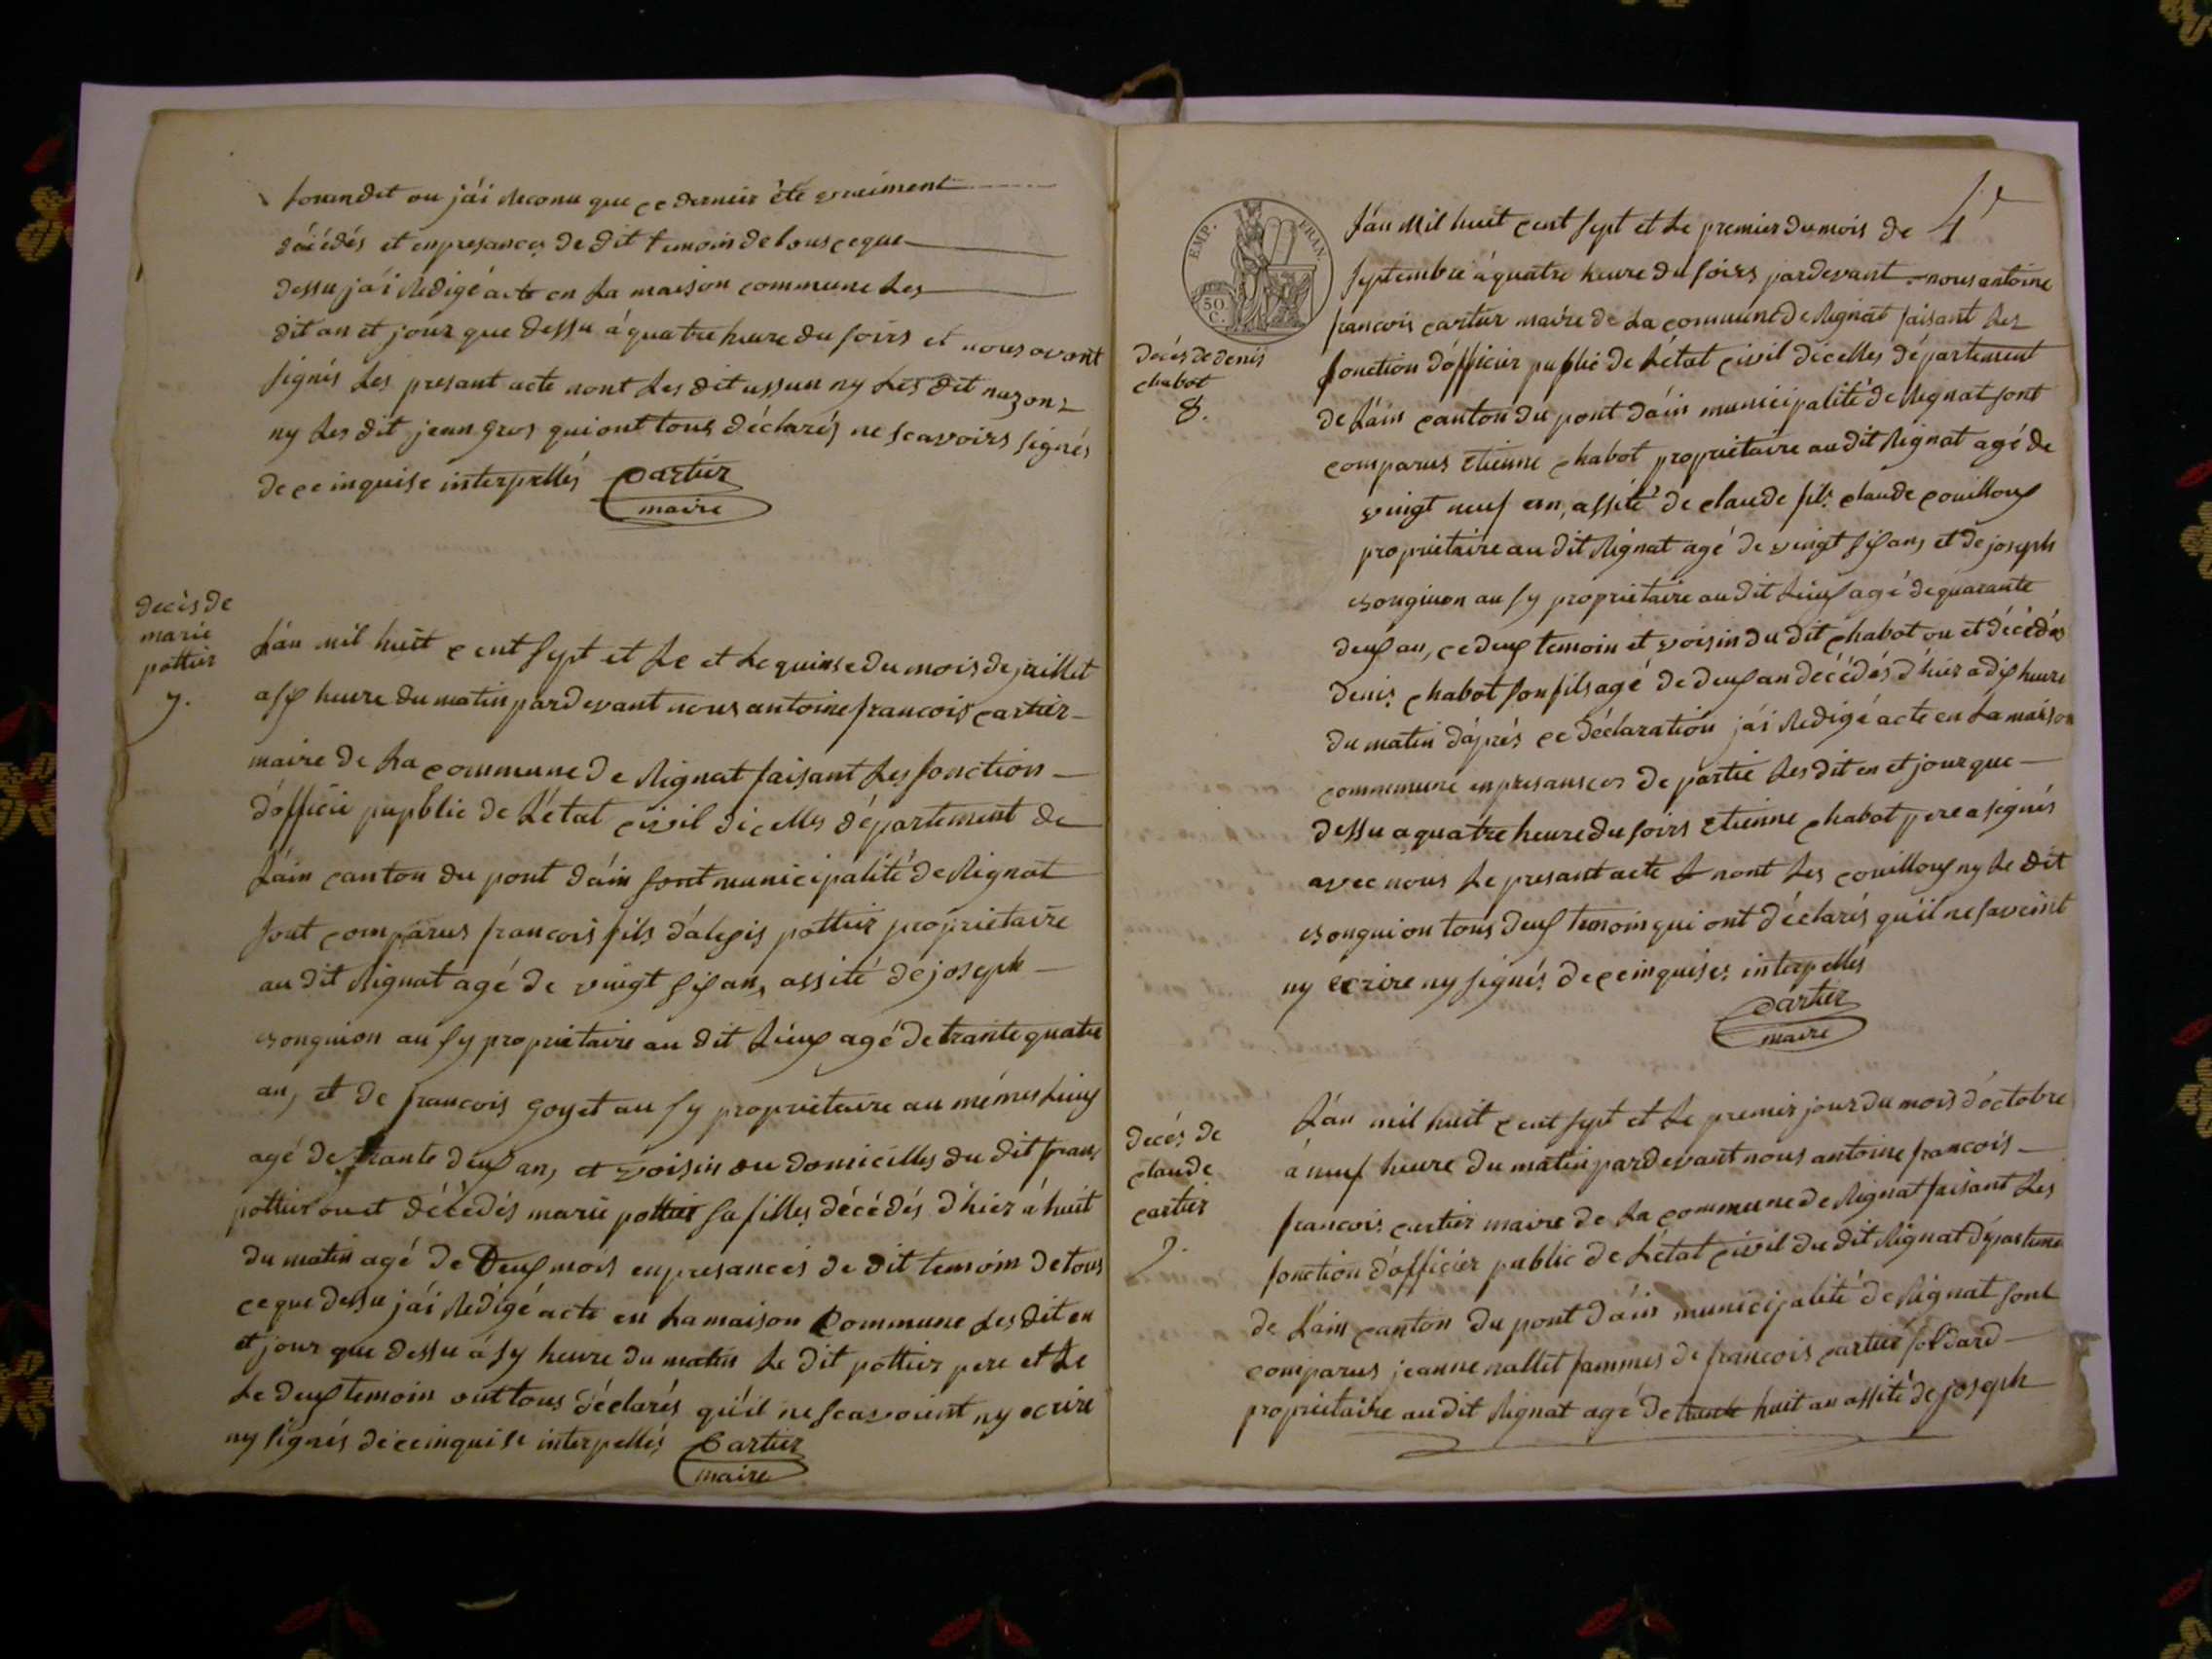 souendit ou jái Reconu que ce dernier été vraiment
décédés et en presances de dit temoin de tous ce que
dessu jái Redigé acte en La maison commune Les
dit an et jour que dessu á quatre heure du soirs et nous avont
signés Les presant acte nont Les dit ussun ny Les dit nazon
ny Les dit jean gros qui ont tous déclarés ne scavoirs signés
de ce inquise interpellés Cartier
maire
decès de
marie
pottier
7.
Lán mil huit cent sept et Le et Le quinse du mois de juillet
a six heure du matin pardevant nous antoine francois cartier
maire de La commune de Rignat faisant Les fonction
dófficie pupblic de Létat civil dicelles département de
Láin canton du pont dáin sont municipalité de Rignat
sont comparus francois fils dálexis pottier propriétaire
au dit Rignat agé de vingt six ans assité de joseph
vonguion au sy propriétaire au dit Lieux agé de trante quatre
an, et de francois goyet au sy propriétaire au mémes Lieux
agé de trante deux an, et voisin ou domicilles du dit frans
pottier ou et décédés marie pottier sa filles décédés d'hier á huit
du matin agé de Deux mois en presances de dit temoin de tous
ce que dessu jái Redigé acte en La maison Commune Les dit en
et jour que dessu á sy heure du matin Le dit pottier pere et Le
Le deux temoin ont tous déclarés qu'il ne scavoient ny ecrire
ny signés de ce inquise interpellés Cartier
maire
4e
EMP. FRAN.
50
C.
Lán Mil huit cent sept et Le premier du mois de
septembre á quatre heure du soirs pardevant nous antoine
francois cartier maire de La commune de Rignat faisant Les
fonction dófficier public de Létat civil dicelles département
decés de denis
chabot
8.
de Láin canton du pont dáin municipalité de Rignat sont
comparus Etienne chabot propriétaire au dit Rignat agé de
vingt neuf an, assité de claude fils claude couilloux
propriétaire au dit Rignat agé de vingt six ans et de joseph
vonguion au sy propriétaire au dit Lieux agé de quarante
deux an, ce deux temoin et voisin du dit chabot ou et décédés
denis chabot son fils agé de deux an décédés d'hier a dix heure
du matin dáprés ce déclaration jái Redigé acte en La maison
commune en presansces de partie Les dit en et jour que
dessu a quatre heure du soirs Etienne chabot pere a signés
avec nous Le presant acte nont Les couilloux ny Le dit
vonguion tous deux temoin qui ont déclarés qu'il ne saveint
ny ecrire ny signés de ce inquises interpellés
Cartier
maire
decés de
claude
cartier
9.
Lán mil huit cent sept et Le premier jour du mois d'octobre
á neuf heure du matin pardevant nous antoine francois
francois cartier maire de La commune de Rignat faisant Les
fonction dófficier public de Létat civil du dit Rignat départeme
de Láin canton du pont dáin municipalité de Rignat sont
comparus jeanne nallet fammes de francois cartier soldard
propriétaire au dit Rignat agé de trante huit an assité de joseph